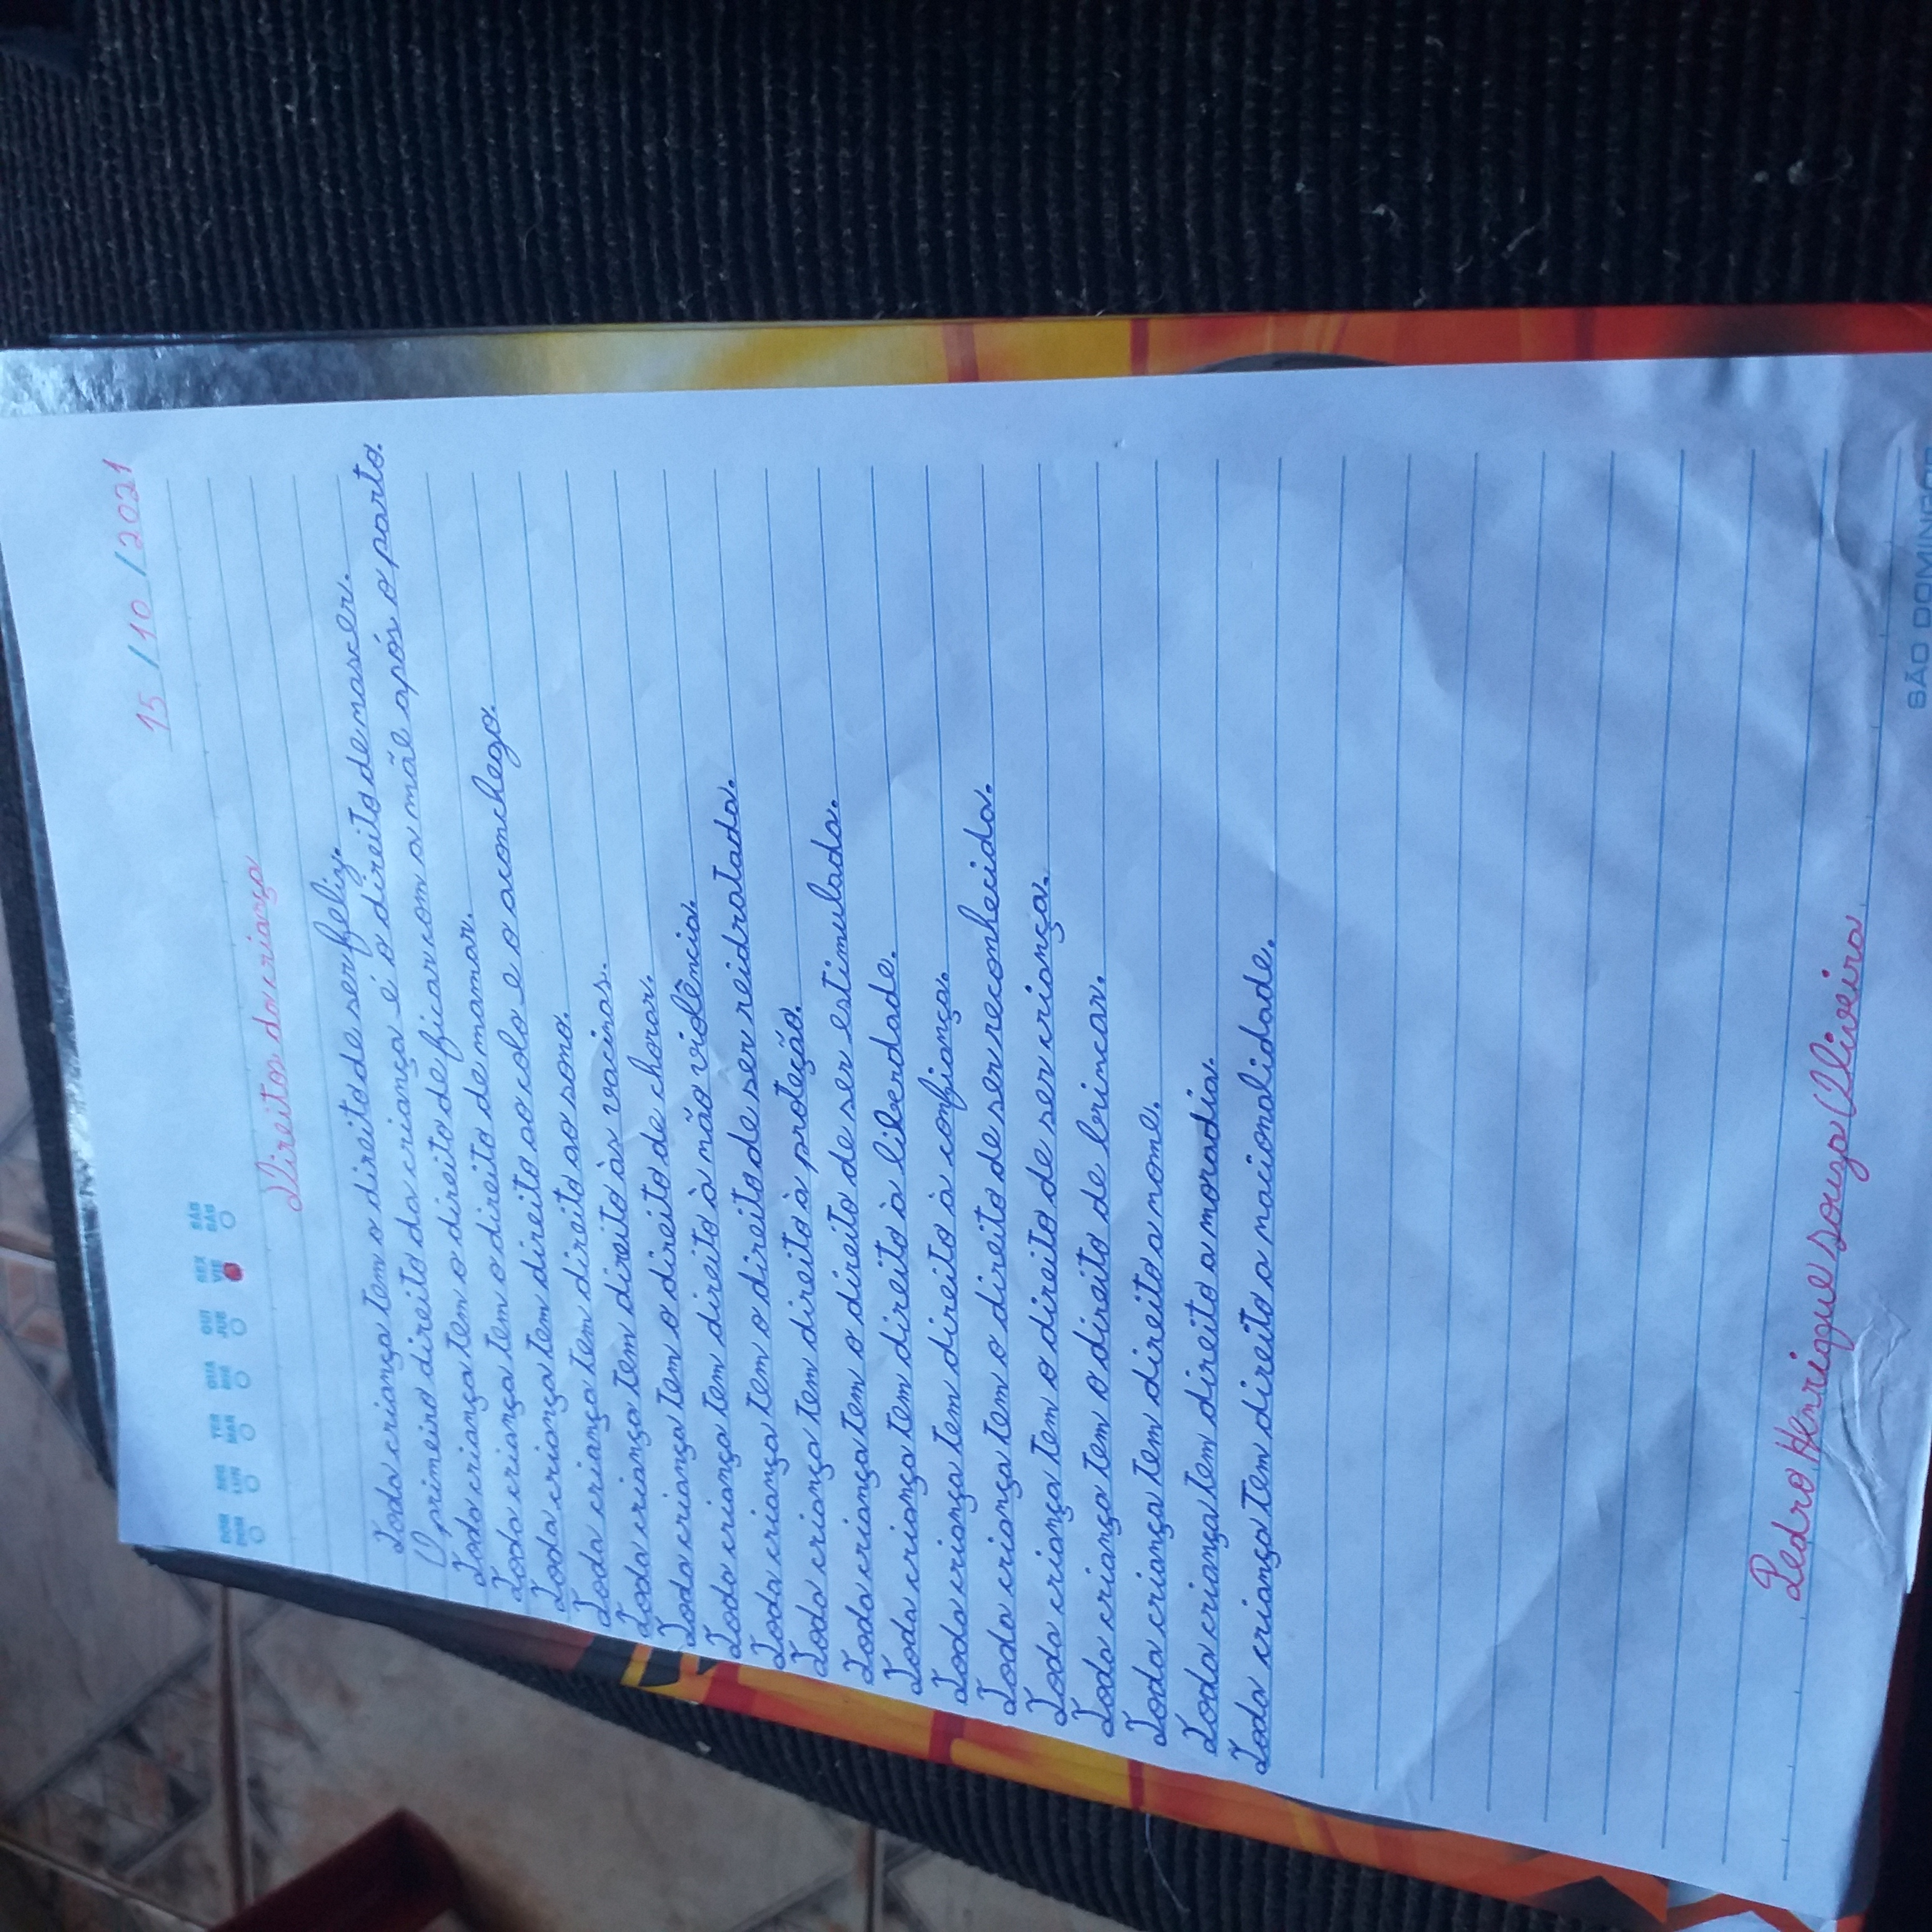 15/10/2021
DOM SEG TER QUA QUI SEX SÁB
DOM LUN MAR MIÉ JUE VIE SÁB
Direitos da criança
Toda criança tem o direito de ser feliz.
O primeiro direito da criança é o direito de nascer.
Toda criança tem o direito de ficar com a mãe após o parto.
Toda criança tem o direito de mamar.
Toda criança tem direito ao colo e o aconchego.
Toda criança tem direito ao sono.
Toda criança tem direito às vacinas.
Toda criança tem o direito de chorar.
Toda criança tem direito à não violência.
Toda criança tem o direito de ser reidratada.
Toda criança tem direito à proteção.
Toda criança tem o direito de ser estimulada.
Toda criança tem direito à liberdade.
Toda criança tem direito à confiança.
Toda criança tem o direito de ser reconhecida.
Toda criança tem o direito de ser criança.
Toda criança tem o direito de brincar.
Toda criança tem direito a nome.
Toda criança tem direito a moradia.
Toda criança tem direito a nacionalidade.
Pedro Henrique Souza Oliveira
SÃO DOMINGOS